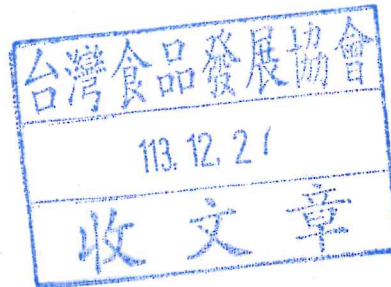 台灣食品發展協會
113.12.21
收文章